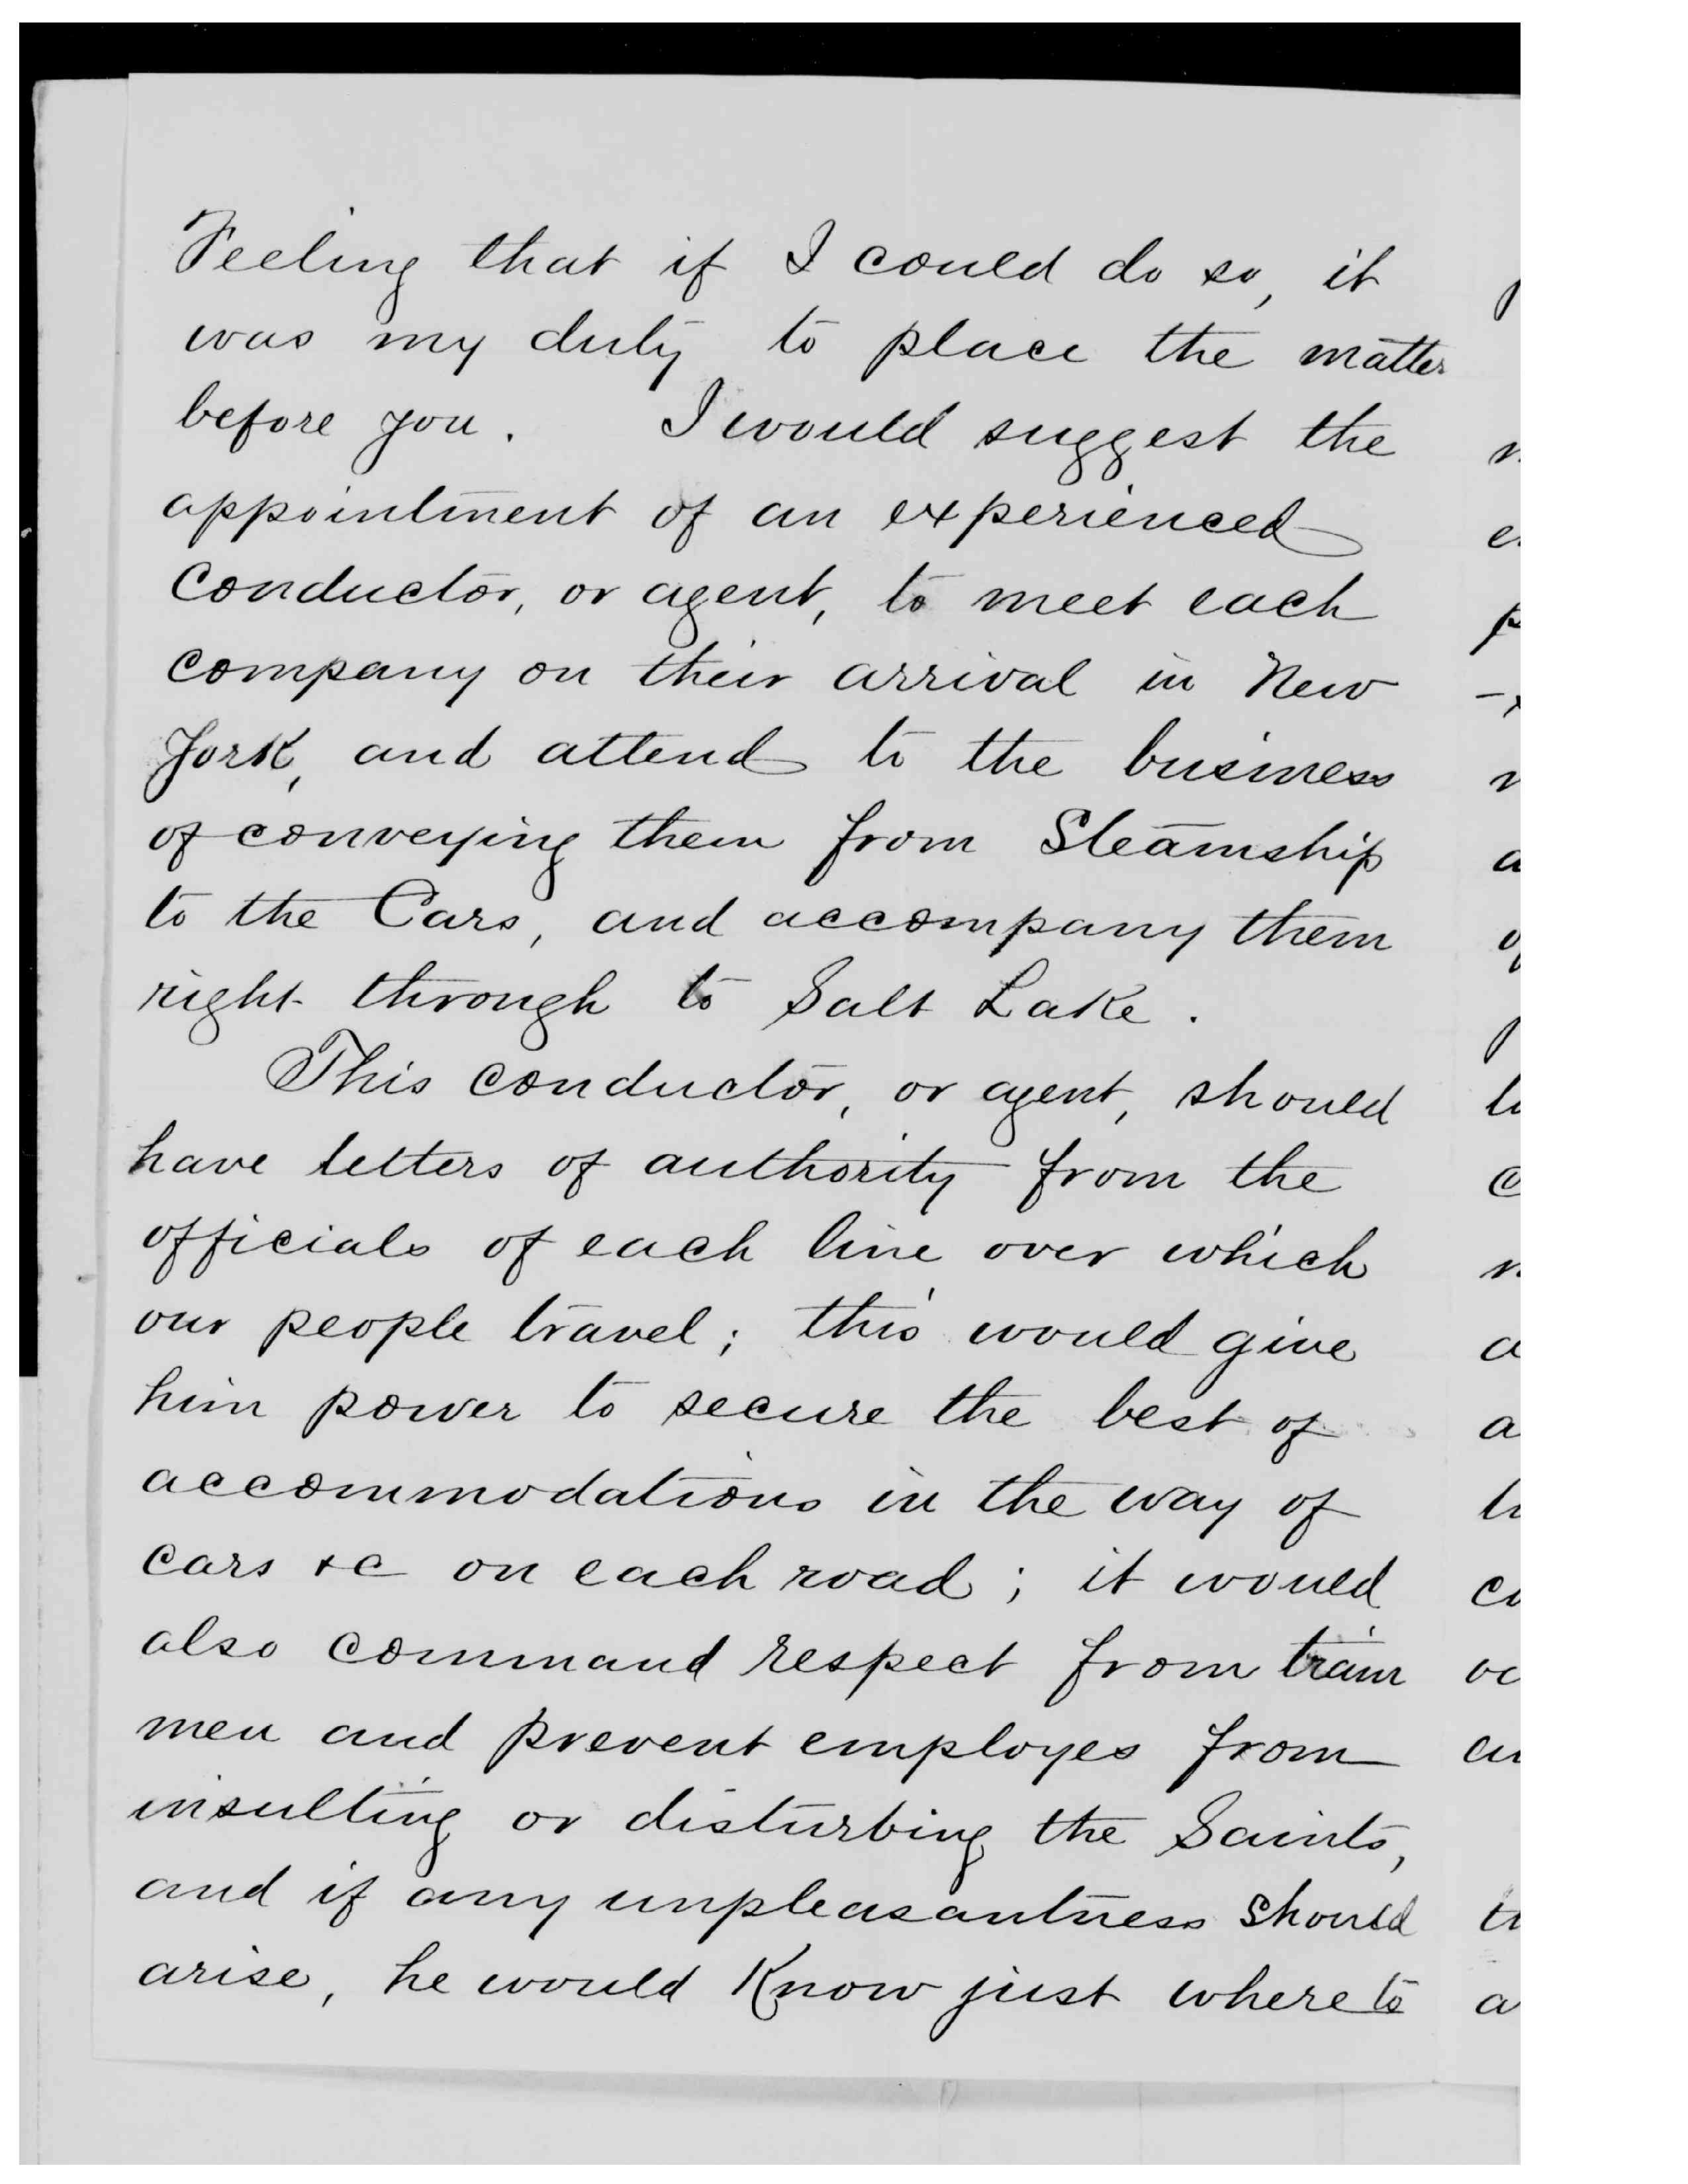 Feeling that if I could do so, it
was my duty to place the matter
before you. I would suggest the
appointment of an experienced
Conductor, or agent, to meet each
company on their arrival in New
York, and attend to the business
of conveying them from Steamship
to the Cars, and accompany them
right through to Salt Lake.
This conductor, or agent, should
have letters of authority from the
officials of each line over which
our people travel; this would give
him power to secure the best of
accommodations in the way of
cars &c on each road; it would
also command respect from train
men and prevent employes from
insulting or disturbing the Saints,
and if any unpleasantness should
arise, he would Know just where to